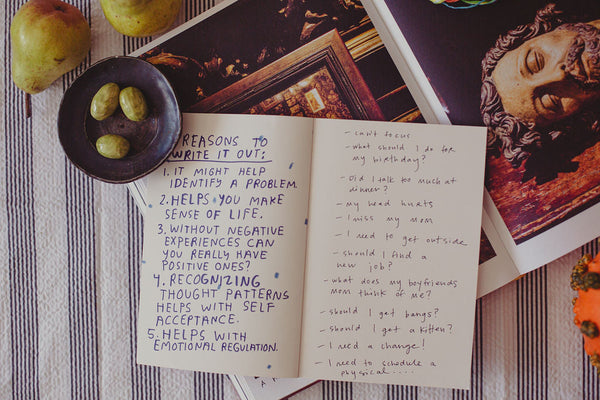 REASONS TO
WRITE IT OUT:
1. IT MIGHT HELP
IDENTIFY A PROBLEM.
2. HELPS YOU MAKE
SENSE OF LIFE.
3. WITHOUT NEGATIVE
EXPERIENCES CAN
YOU REALLY HAVE
POSITIVE ONES?
4. RECOGNIZING
THOUGHT PATTERNS
HELPS WITH SELF
ACCEPTANCE.
5. HELPS WITH
EMOTIONAL REGULATION.
- can't focus
- what should I do for
my birthday?
- Did I talk too much at
dinner?
- my head hurts
- I miss my mom
- I need to get outside
- should I find a
new job?
- what does my boyfriends
mom think of me?
- should I get bangs?
- should I get a kitten?
- I need a change!
- I need to schedule a
physical....